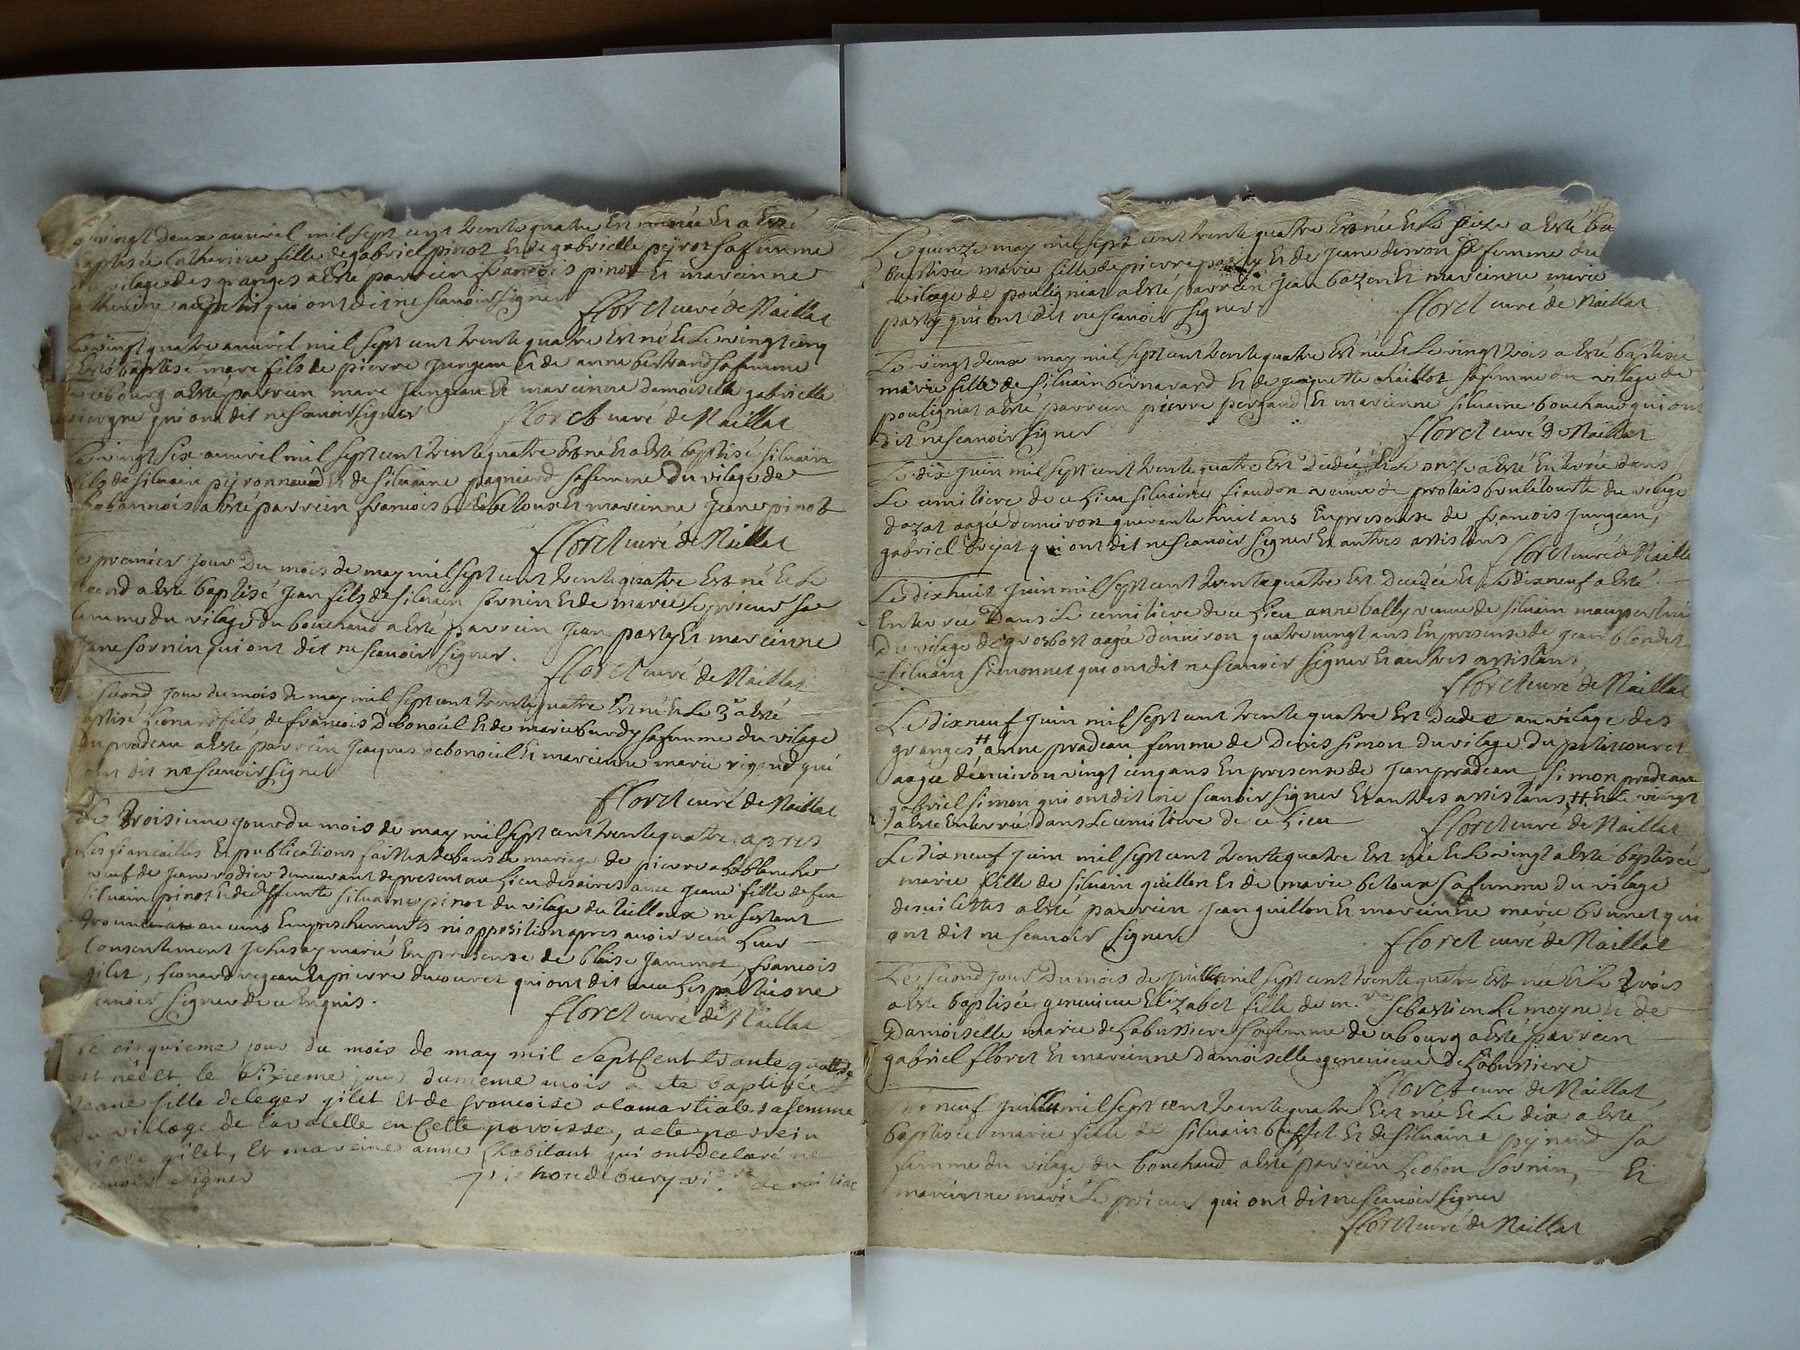 vingt deux auvril mil sept cent trente quatre Est née Et a Esté
baptisée Catherine fille de gabriel pinot Et de gabrielle peyrot sa femme
vilage des granges a Esté parrein françois pinot Et mareinne
Catherine qui ont dit ne scavoir signer
floret curé de Naillat
Le vingt quatre auvril mil sept cent trente quatre Est né Et Le vingt cinq
Esté baptisé marc fils de pierre jungeau Et de anne bertrand sa femme
bourg a Esté parrein marc jungeau Et mareinne damoiselle gabrielle
qui ont dit ne scavoir signer floret curé de Naillat
Le vingt six auvril mil sept cent trente quatre Est né Et a Esté baptisé siluain
fils de siluain peyronneau Et de siluaine pagneard sa femme du vilage de
Chabannois a Esté parrein francois betoux Et mareinne jeane pinot
floret curé de Naillat
Le premier jour Du mois de may mil sept cent trente quatre Est né Et Le
second a Esté baptisé jean fils de siluain sornin Et de marie Le prieur sa
femme du vilage du bouchaud a Esté parrein jean party Et mareinne
jeane sornin qui ont dit ne scavoir signer.
floret curé de Naillat
Le second jour du mois de may mil sept cent trente quatre Est né Et Le 3e a Esté
baptisé Leonard fils de francois Debonoueil Et de marie burdy sa femme du vilage
du pradeau a Esté parrein jacques debonoueil Et mareinne marie rigaud qui
ont dit ne scavoir signer
floret curé de Naillat
Le Troisieme jour du mois de may mil sept cent trente quatre apres
Les fiancailles Et publications faittes de bans de mariage de pierre
veuf de jeane rodier demeurant de present au Lieu desaires avec jeane fille de feu
siluain pinot Et de deffunte siluaine pinot du vilage du tilloux ne sestant
trouué aucuns Empeschements ni opposition apres avoir receu Leur
Consentement je Les ay marié En presense de blaise jammot, francois
gilet, Leonard regeau Et pierre ducouret qui ont dit avec Les parties ne
scavoir signer de ce Enquis.
floret curé de Naillat
Le cinquieme jour du mois de may mil sept Cent trante quattre
est néé et le sixieme jour dumeme mois a ete baptisée
Jeane fille de leger gilet Et de francoise alamartiale sa femme
du village de lavalette en Cette paroisse, a ete parrein
gilet, Et mareine anne Chabitant qui ont declaré ne
scavoir signer
Le quinze may mil sept cent trente quatre Est née Et Le seize a Esté
baptisée marie fille de pierre party Et de jeane desvon sa femme du
vilage de poulignat a Esté parrein jean bazon Et mareinne marie
party qui ont dit ne scavoir signer floret curé de Naillat
Le vingt deux may mil sept cent trente quatre Est née Et Le vingt trois a Esté baptisée
marie fille de siluain bernard Et de jacquette chaillot sa femme du vilage de
poulignat a Esté parrein pierre pergaud Et mareinne siluaine bouchaud qui ont
dit ne scavoir signer floret curé de Naillat
Le dix juin mil sept cent trente quatre Est Decedée Et Le onze a Esté Enterrée dans
Le cemitiere de ce Lieu siluaine fiaudon veuve de protais bouletourte du vilage
dazat aagée denviron quarante huit ans En presense de francois jungeau,
gabriel qui ont dit ne scavoir signer Et autres assistans floret curé de Naillat
Le dix huit juin mil sept cent trente quatre Est Decedée Et Le dix neuf a Esté
Enterrée Dans Le cemitiere de ce Lieu anne bally veuve de siluain maupertuis
du vilage de grosbost aagée denviron quatre vingt ans En presense de jean blondet
siluain simonnet qui ont dit ne scavoir signer Et autres assistans,
floret curé de Naillat
Le dix neuf juin mil sept cent trente quatre Est Decedée au vilage des
granges # anne pradeau femme de Denis simon du vilage du petit couret
aagée denviron vingt cinq ans En presense de jean pradeau, simon pradeau
gabriel simon qui ont dit ne scavoir signer Et autres assistans, # Et Le vingt
a Esté Enterrée dans Le cemitiere de ce Lieu floret curé de Naillat
Le dix neuf juin mil sept cent trente quatre Est née Et Le vingt a Esté baptisée
marie fille de siluain guillon Et de marie betoux sa femme du vilage
des vilettes a Esté parrein jean guillon Et mareinne marie bonnet qui
ont dit ne scavoir signer floret curé de Naillat
Le second jour Du mois de juillet mil sept cent trente quatre Est née Et Le Trois
a Esté baptisée genevieve Elizabet fille de m.re sebastien Le moyne Et de
Damoiselle marie de Labussiere sa femme de ce bourg a Esté parrein
gabriel floret Et mareinne damoiselle genevieve de Labussiere
floret curé de Naillat,
Le neuf juillet mil sept cent trente quatre Est née Et Le dix a Esté
baptisée marie fille de siluain buffet Et de siluaine pynaud sa
femme du vilage du bouchaud a Esté parrein Leobon sornin, Et
mareinne marie Le prieur qui ont dit ne scavoir signer
floret curé de Naillat